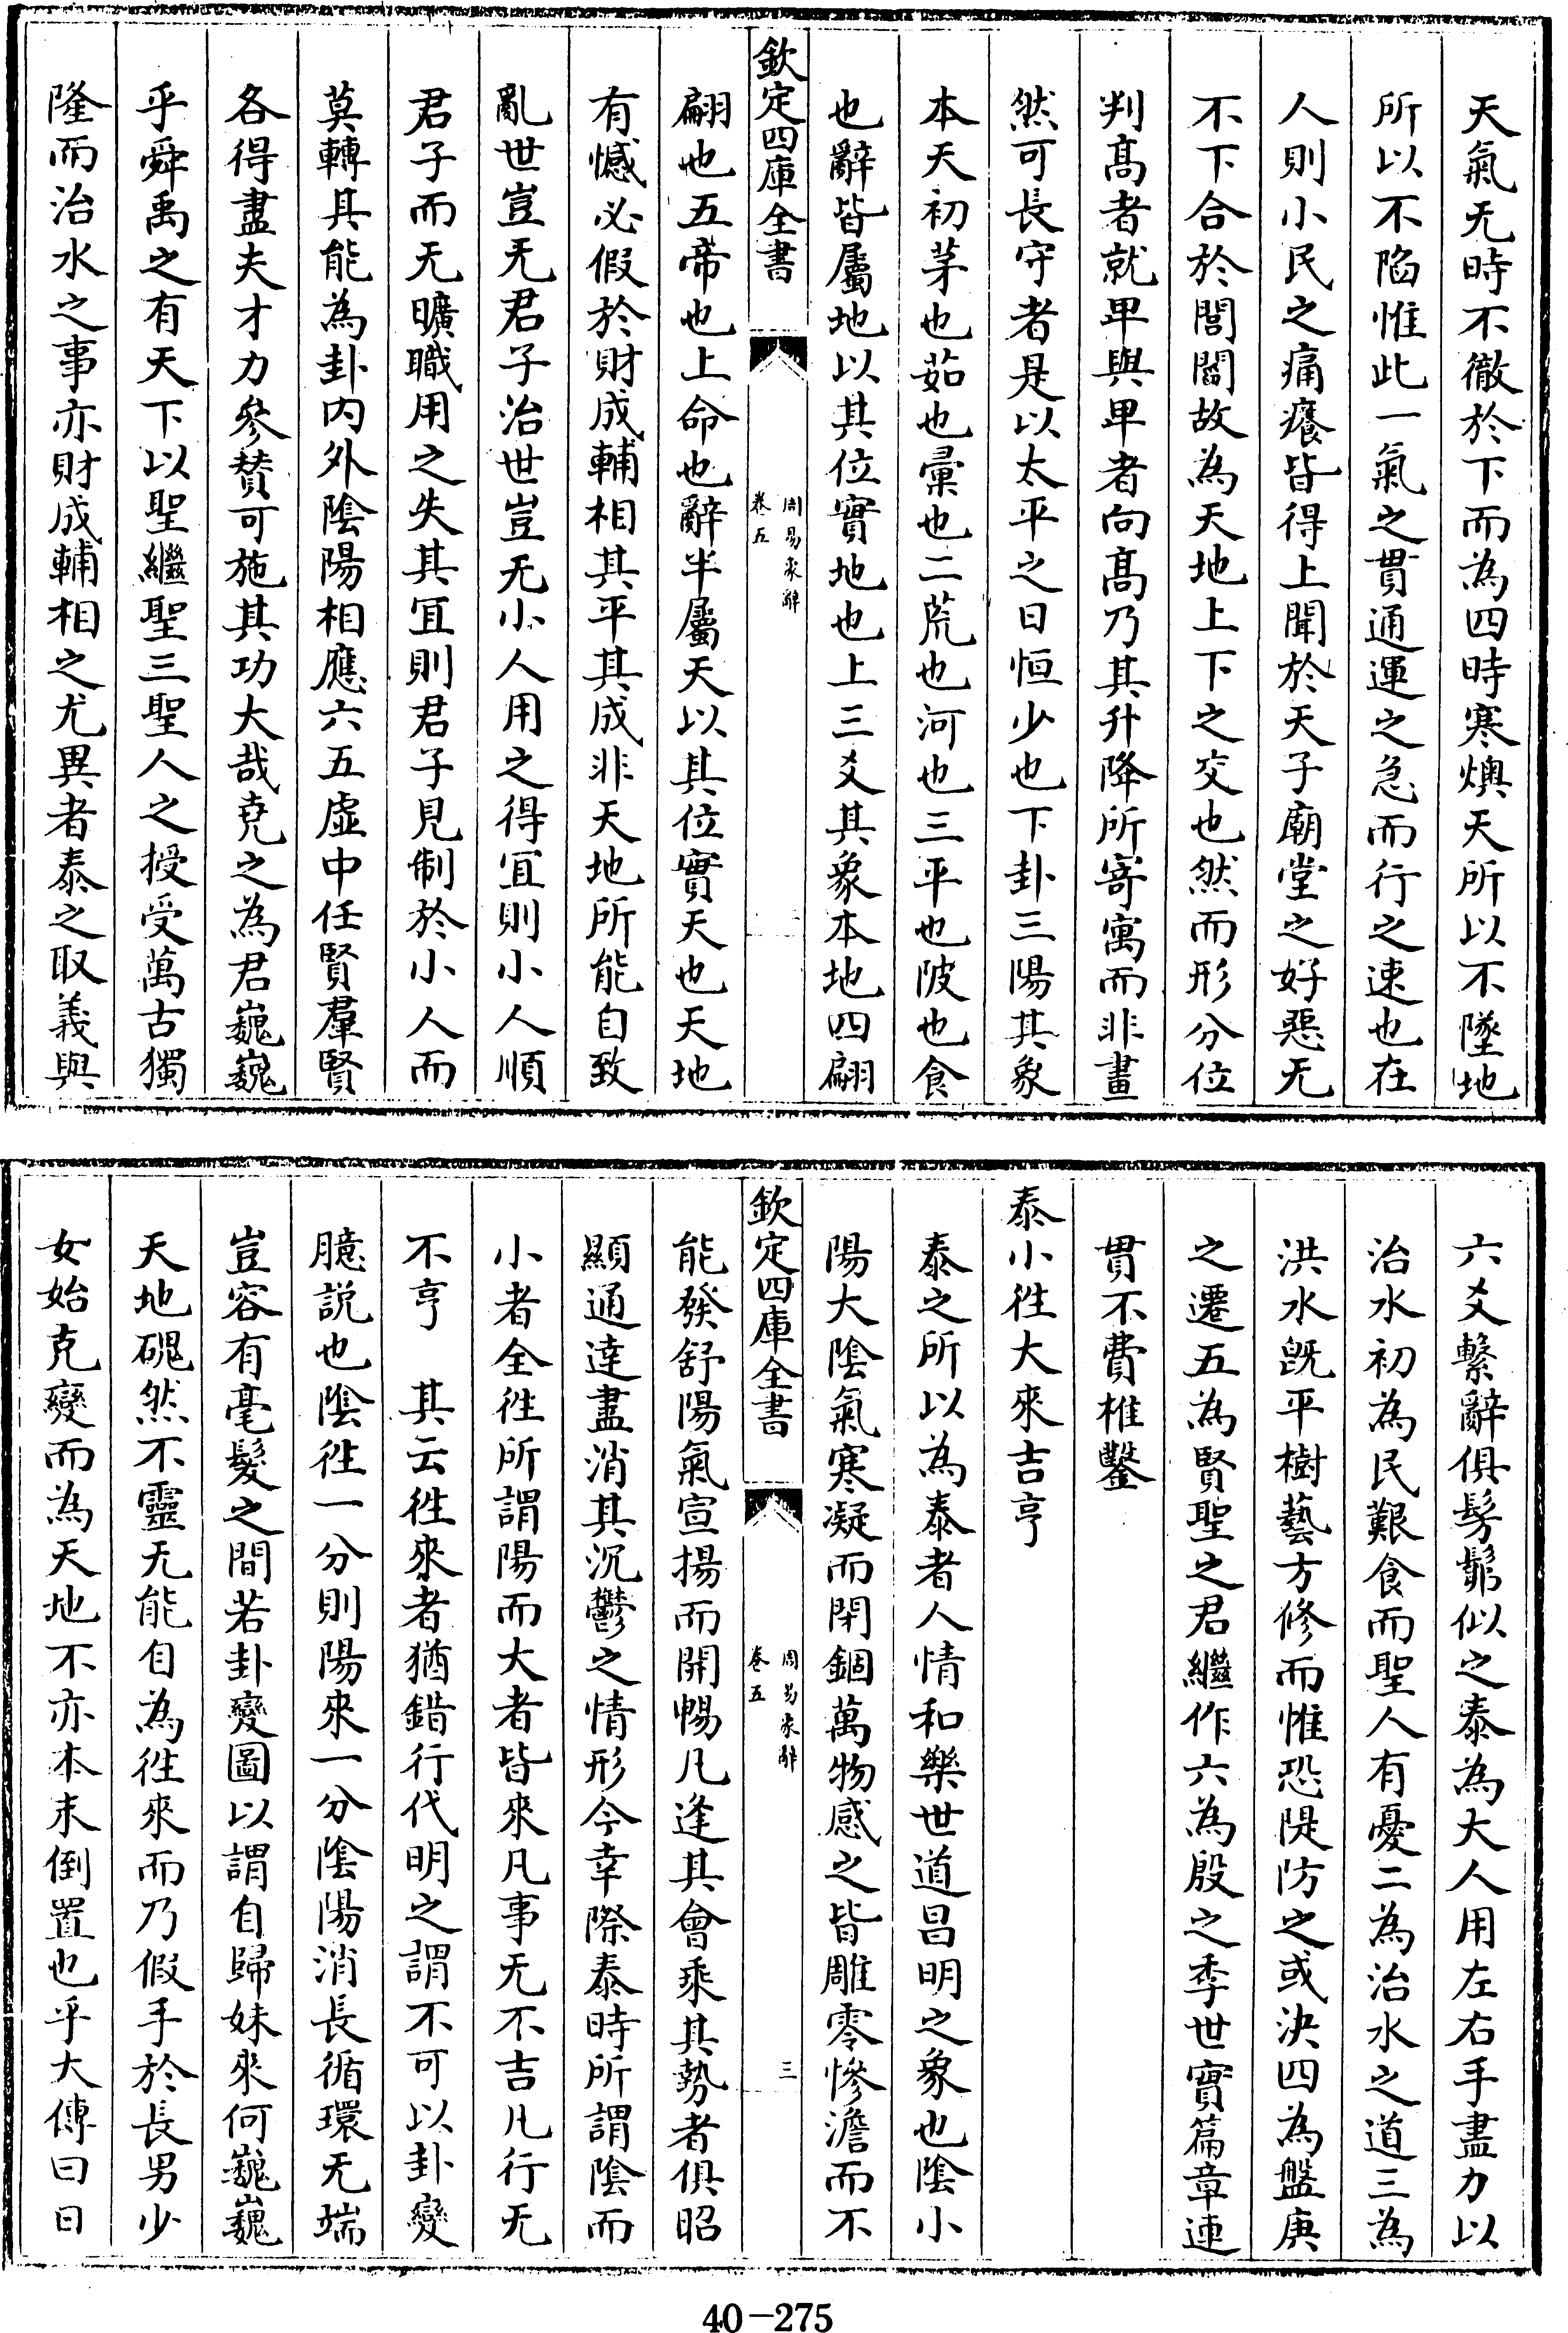 天氣无時不徹於下而為四時寒燠天所以不墜地
所以不陷惟此一氣之貫通運之急而行之速也在
人則小民之痛癢皆得上聞於天子廟堂之好惡无
不下合於閭閻故為天地上下之交也然而形分位
判髙者就卑與卑者向髙乃其升降所寄寓而非畫
然可長守者是以太平之日恒少也下卦三陽其象
本天初茅也茹也彚也二荒也河也三平也陂也食
也辭皆屬地以其位實地也上三爻其象本地四翩
欽定四庫全書
周易象辭
卷五
翩也五帝也上命也辭半屬天以其位實天也天地
有憾必假於財成輔相其平其成非天地所能自致
亂世豈无君子治世豈无小人用之得宜則小人順
君子而无曠職用之失其宜則君子見制於小人而
莫轉其能為卦内外陰陽相應六五虛中任賢羣賢
各得盡夫才力參賛可施其功大哉堯之為君巍巍
乎舜禹之有天下以聖繼聖三聖人之授受萬古獨
隆而治水之事亦財成輔相之尤異者泰之取義與
六爻繫辭俱髣髴似之泰為大人用左右手盡力以
治水初為民艱食而聖人有憂二為治水之道三為
洪水旣平樹藝方修而惟恐隄防之或決四為盤庚
之遷五為賢聖之君繼作六為殷之季世實篇章連
貫不費椎鑿
泰小徃大來吉亨
泰之所以為泰者人情和樂世道昌明之象也陰小
陽大陰氣寒凝而閉錮萬物感之皆雕零慘澹而不
欽定四庫全書
周易象辭
卷五
三
能發舒陽氣宣揚而開暢凡逢其會乘其勢者俱昭
顯通達盡消其沉鬱之情形今幸際泰時所謂陰而
小者全徃所謂陽而大者皆來凡事无不吉凡行无
不亨 其云徃來者猶錯行代明之謂不可以卦變
臆説也陰徃一分則陽來一分陰陽消長循環无端
豈容有毫髮之間若卦變圖以謂自歸妹來何巍巍
天地磈然不靈无能自為徃來而乃假手於長男少
女始克變而為天地不亦本末倒置也乎大傳曰日
40-275